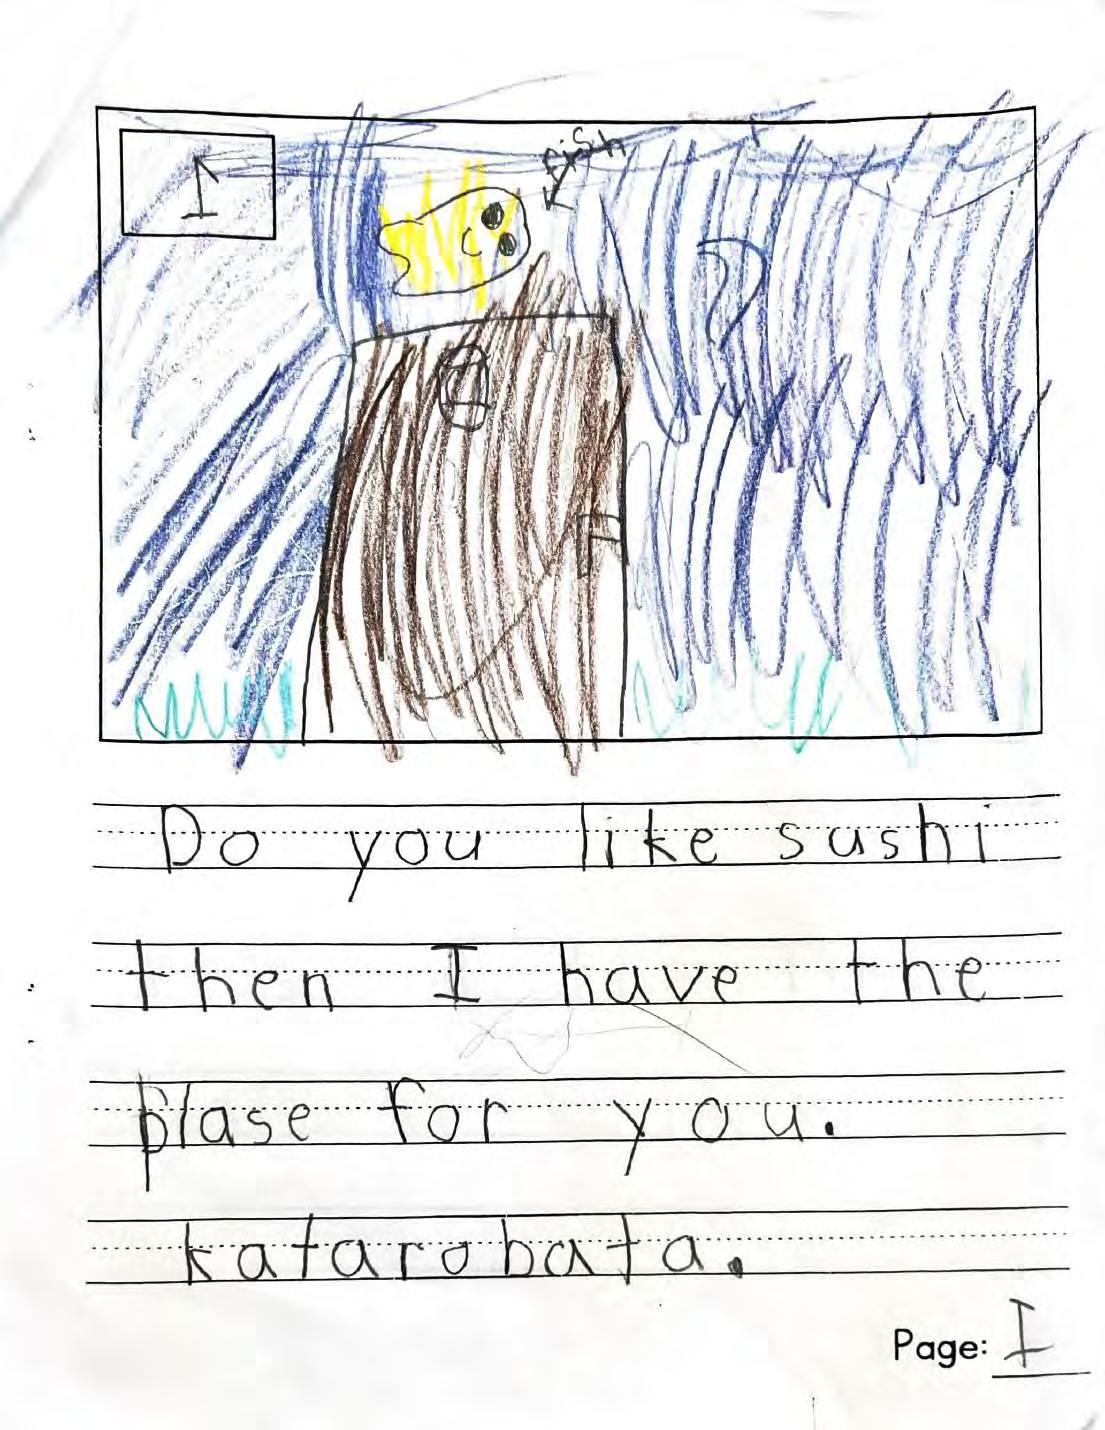 1
fish
Do you like sushi
then I have the
plase for you.
katarobata.
Page: 1